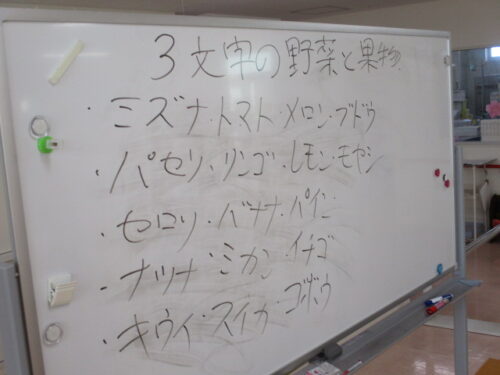 3文字の野菜と果物
・ミズナ・トマト・メロン・ブドウ
・パセリ、リンゴ・レモン・モヤシ
・セロリ・バナナ・パイン
・ナツナ・ミカン・イチゴ
・キウイ・スイカ・ゴボウ